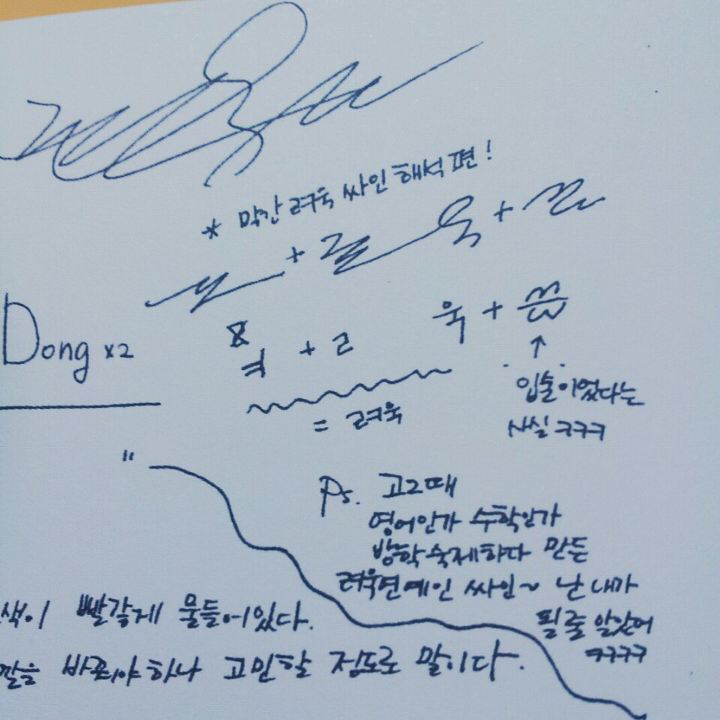 * 막간 려욱 싸인 해석 편!
+ +
Dong x2
+ ㄹ 욱 +
= 려욱
↑
입술이었다는
사실 ㅋㅋㅋ
"
Ps. 고2때
영어인가 수학인가
방학숙제하다 만든
려욱연예인 싸인~ 난 내가
될 줄 알았어
ㅋㅋㅋㅋ
색이 빨갛게 물들어있다.
깔을 바꿔야하나 고민할 정도로 말이다.